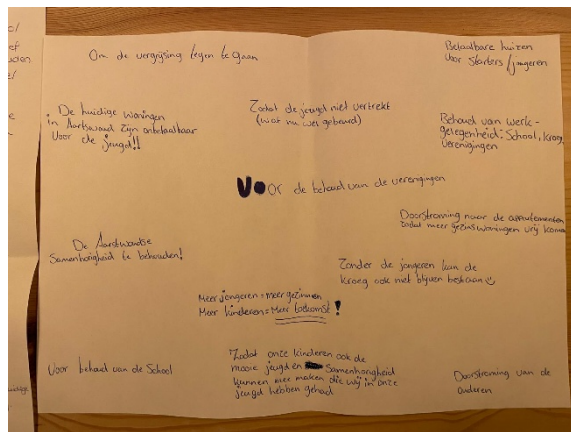 Om de vergrijzing tegen te gaan
Betaalbare huizen
voor starters/jongeren
De huidige woningen
in Aartswoud zijn onbetaalbaar
voor de jeugd!!
Zodat de jeugd niet vertrekt
(wat nu wel gebeurd)
Behoud van werk-
gelegenheid: School, kroeg,
verenigingen
VOOr de behoud van de verenigingen
Doorstroming naar de appartementen
zodat meer gezinswoningen vrij komen
De Aartswoudse
Samenhorigheid te behouden!
Zonder de jongeren kan de
kroeg ook niet blijven bestaan
Meer jongeren = meer gezinnen
Meer kinderen = Meer toekomst!
Voor behoud van de School
Zodat onze kinderen ook de
mooie jeugd en Samenhorigheid
kunnen mee maken die wij in onze
jeugd hebben gehad
Doorstroming van de
ouderen